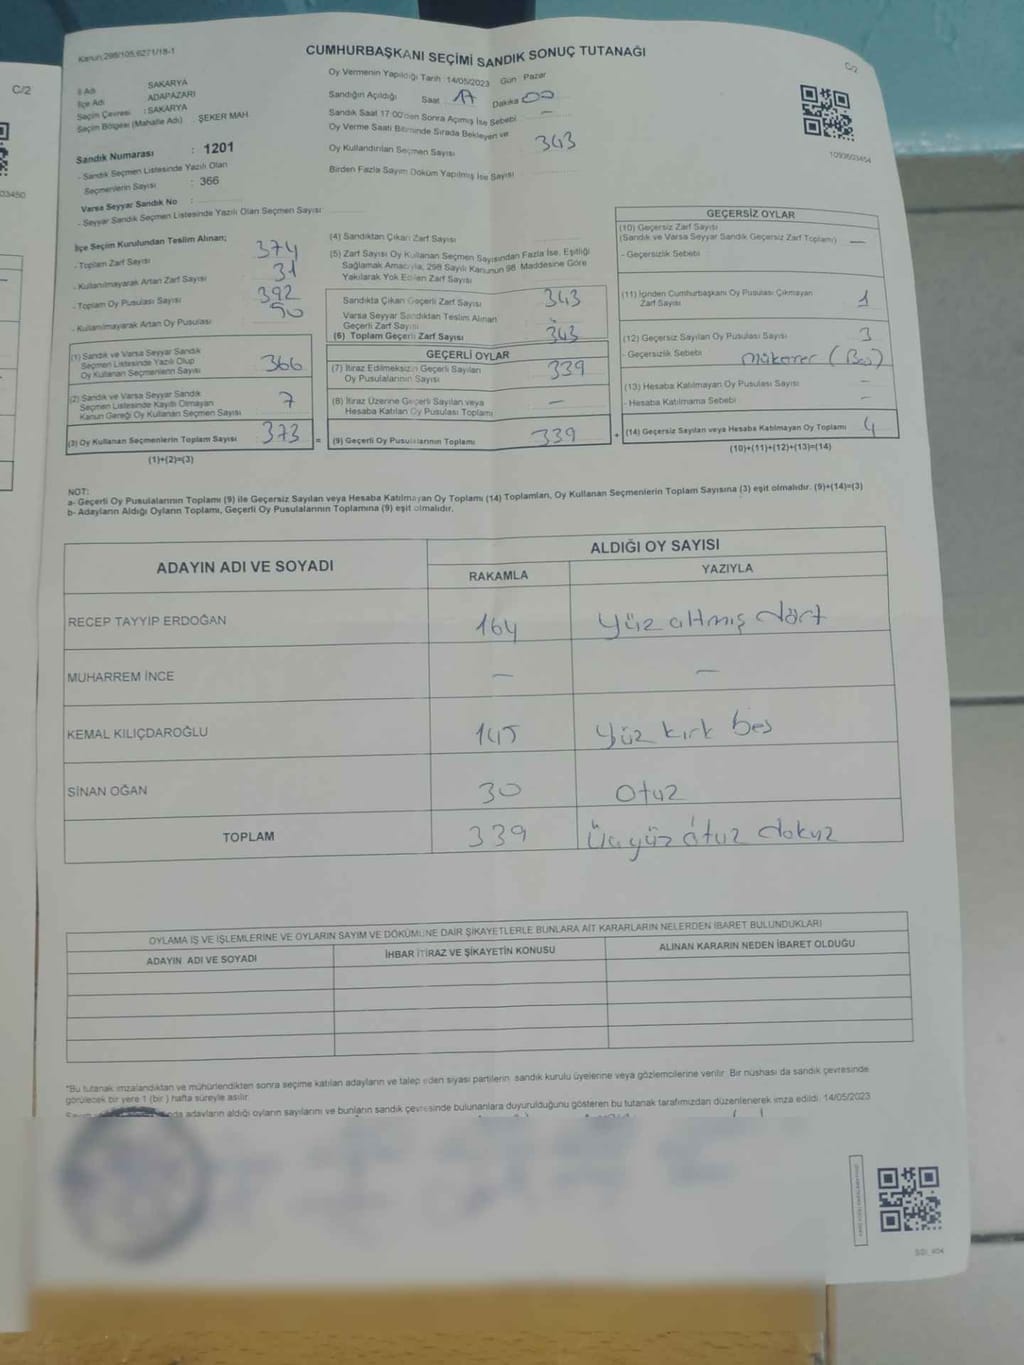 Kanun:298/105,6271/18-1
CUMHURBAŞKANI SEÇİMİ SANDIK SONUÇ TUTANAĞI
C/2
C/2
İl Adı SAKARYA
İlçe Adı ADAPAZARI
Seçim Çevresi : SAKARYA
Seçim Bölgesi (Mahalle Adı) ŞEKER MAH.
Sandık Numarası : 1201
- Sandık Seçmen Listesinde Yazılı Olan
Seçmenlerin Sayısı : 366
Varsa Seyyar Sandık No :
- Seyyar Sandık Seçmen Listesinde Yazılı Olan Seçmen Sayısı:
Oy Vermenin Yapıldığı Tarih :14/05/2023 Gün : Pazar
Sandığın Açıldığı Saat 17 Dakika 00
Sandık Saat 17:00'den Sonra Açımış İse Sebebi —
Oy Verme Saati Bitiminde Sırada Bekleyen ve
Oy Kullandırılan Seçmen Sayısı 343
Birden Fazla Sayım Döküm Yapılmış İse Sayısı
1093603454
03450
İlçe Seçim Kurulundan Teslim Alınan;
- Toplam Zarf Sayısı 374
- Kullanılmayarak Artan Zarf Sayısı 31
- Toplam Oy Pusulası Sayısı 392
- Kullanılmayarak Artan Oy Pusulası 50
(1) Sandık ve Varsa Seyyar Sandık
Seçmen Listesinde Yazılı Olup
Oy Kullanan Seçmenlerin Sayısı 366
(2) Sandık ve Varsa Seyyar Sandık
Seçmen Listesinde Kayıtlı Olmayan
Kanun Gereği Oy Kullanan Seçmen Sayısı 7
(3) Oy Kullanan Seçmenlerin Toplam Sayısı 373 =
(1)+(2)=(3)
(4) Sandıktan Çıkan Zarf Sayısı
(5) Zarf Sayısı Oy Kullanan Seçmen Sayısından Fazla İse, Eşitliği
Sağlamak Amacıyla, 298 Sayılı Kanunun 98. Maddesine Göre
Yakılarak Yok Edilen Zarf Sayısı
Sandıkta Çıkan Geçerli Zarf Sayısı 343
Varsa Seyyar Sandıktan Teslim Alınan
Geçerli Zarf Sayısı -
(6) Toplam Geçerli Zarf Sayısı 343
GEÇERLİ OYLAR
(7) İtiraz Edilmeksizin Geçerli Sayılan
Oy Pusulalarının Sayısı 339
(8) İtiraz Üzerine Geçerli Sayılan veya
Hesaba Katılan Oy Pusulası Toplamı —
(9) Geçerli Oy Pusulalarının Toplamı 339 +
GEÇERSİZ OYLAR
(10) Geçersiz Zarf Sayısı
(Sandık ve Varsa Seyyar Sandık Geçersiz Zarf Toplamı) —
- Geçersizlik Sebebi
(11) İçinden Cumhurbaşkanı Oy Pusulası Çıkmayan
Zarf Sayısı 1
(12) Geçersiz Sayılan Oy Pusulası Sayısı 3
- Geçersizlik Sebebi
(13) Hesaba Katılmayan Oy Pusulası Sayısı —
- Hesaba Katılmama Sebebi —
(14) Geçersiz Sayılan veya Hesaba Katılmayan Oy Toplamı 4
(10)+(11)+(12)+(13)=(14)
NOT:
a- Geçerli Oy Pusulalarının Toplamı (9) ile Geçersiz Sayılan veya Hesaba Katılmayan Oy Toplamı (14) Toplamları, Oy Kullanan Seçmenlerin Toplam Sayısına (3) eşit olmalıdır. (9)+(14)=(3)
b- Adayların Aldığı Oyların Toplamı, Geçerli Oy Pusulalarının Toplamına (9) eşit olmalıdır.
ADAYIN ADI VE SOYADI
ALDIĞI OY SAYISI
RAKAMLA YAZIYLA
RECEP TAYYİP ERDOĞAN 164 Yüz altmış dört
MUHARREM İNCE — —
KEMAL KILIÇDAROĞLU 145 Yüz kırk beş
SİNAN OĞAN 30 Otuz
TOPLAM 339 Üçyüz otuz dokuz
OYLAMA İŞ VE İŞLEMLERİNE VE OYLARIN SAYIM VE DÖKÜMÜNE DAİR ŞİKAYETLERLE BUNLARA AİT KARARLARIN NELERDEN İBARET BULUNDUKLARI
ADAYIN ADI VE SOYADI İHBAR İTİRAZ VE ŞİKAYETİN KONUSU ALINAN KARARIN NEDEN İBARET OLDUĞU
*Bu tutanak imzalandıktan ve mühürlendikten sonra seçime katılan adayların ve talep eden siyasi partilerin sandık kurulu üyelerine veya gözlemcilerine verilir. Bir nüshası da sandık çevresinde
görülecek bir yere 1 (bir ) hafta süreyle asılır.
adayların aldığı oyların sayılarını ve bunların sandık çevresinde bulunanlara duyurulduğunu gösteren bu tutanak tarafımızdan düzenlenerek imza edildi. 14/05/2023